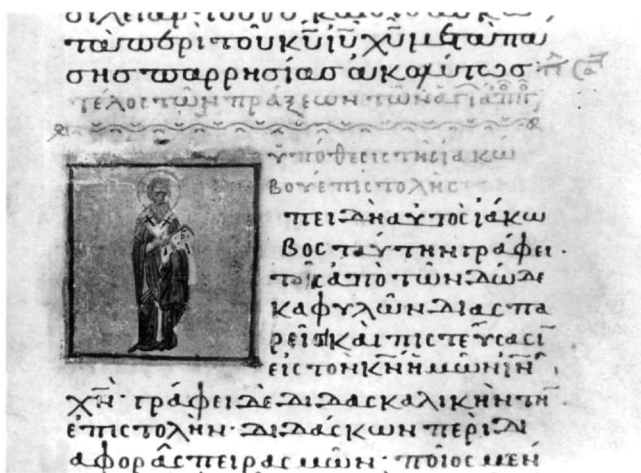 τὰ περὶ τοῦ κ̅υ̅ ἰ̅υ̅ χ̅υ̅ μετὰ πά
σης παρρησίας ἀκωλύτως·
τέλος τῶν πράξεων τῶν ἁγί
ὑπόθεσις τῆς ἰακώ
βου ἐπιστολῆς
πειδὴ αὐτὸς ἰάκω
βος ταύτην γράφει·
τοῖς ἀπὸ τῶν δώδε
κα φυλῶν διασπα
ρεῖσι καὶ πιστεύσασι
εἰς τὸν κ̅ν̅ ἡμῶν ι̅ν̅
χ̅ν̅· γράφει δὲ διδασκαλικὴν τὴν
ἐπιστολὴν· διδάσκων περὶ δι
αφορᾶς πειρασμῶν· ποῖος μὲν